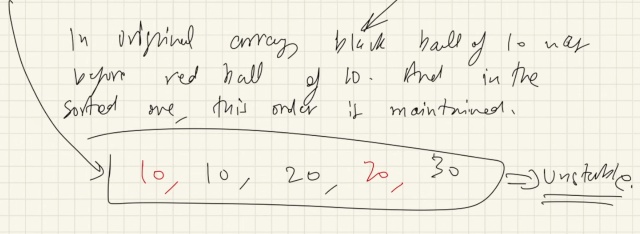 In original array, black ball of 10 was
before red ball of 10. And in the
sorted one, this order is maintained.
10, 10, 20, 20, 30 => Unstable.